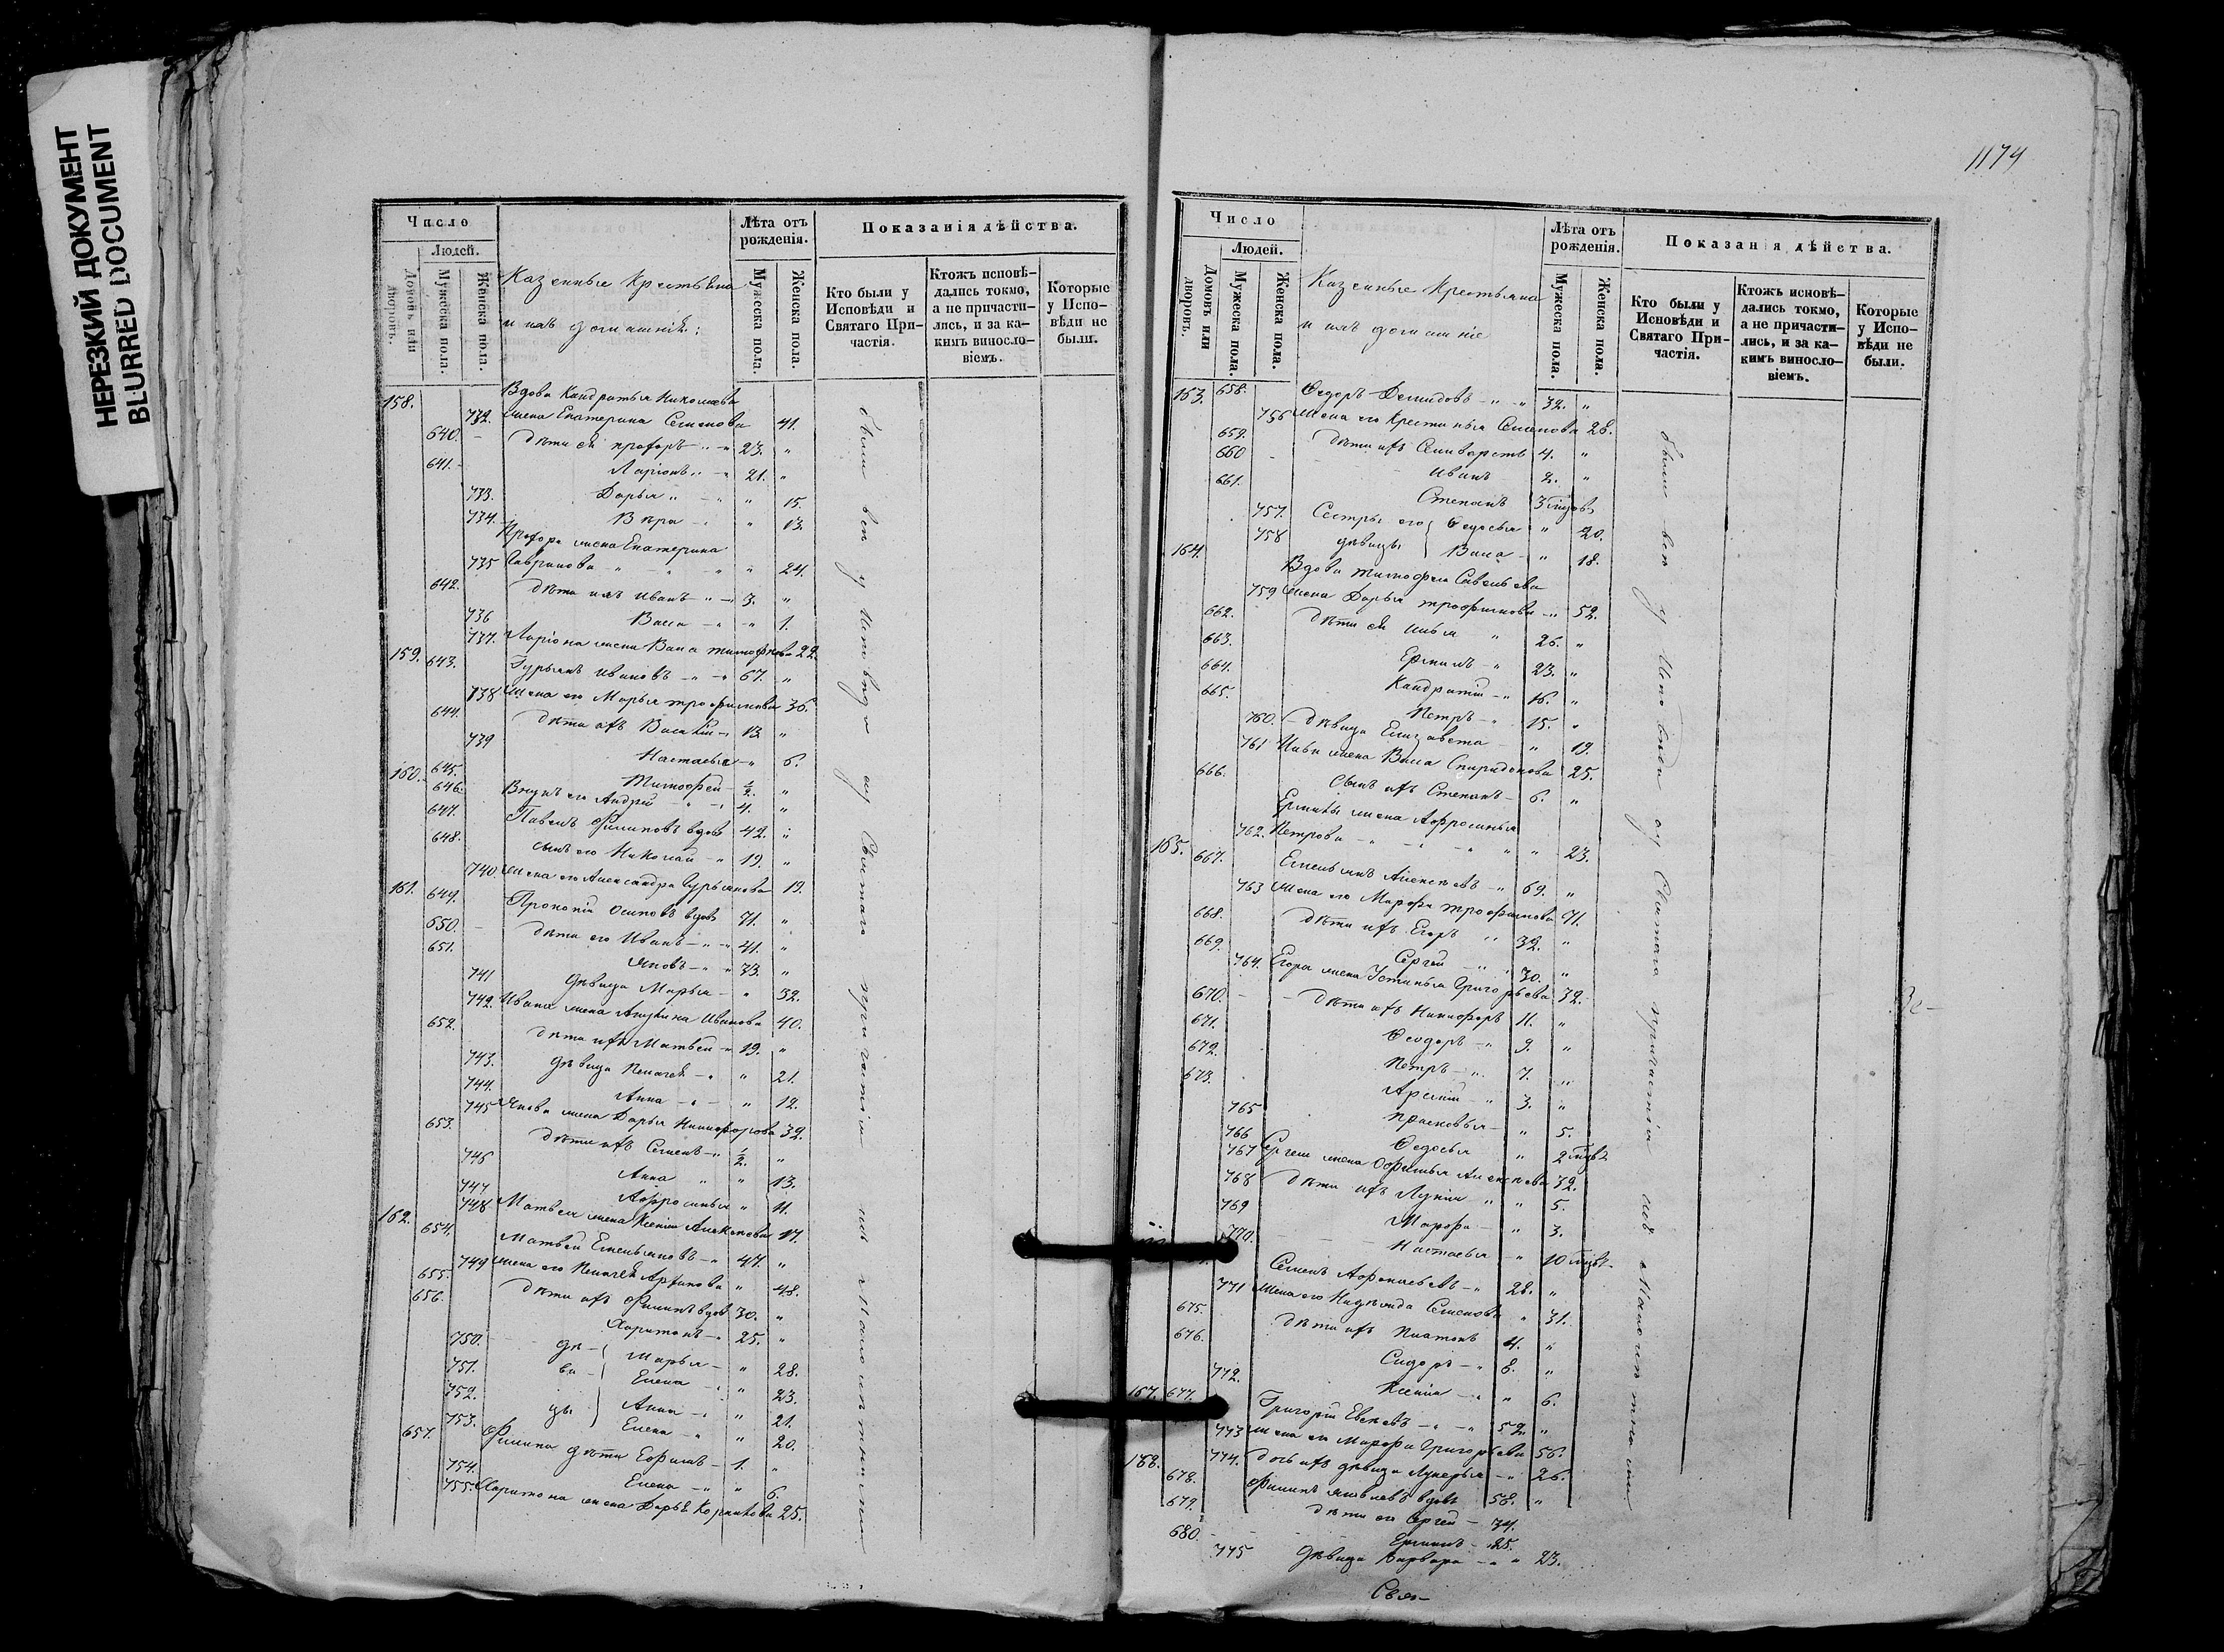 НЕРЕЗКИЙ ДОКУМЕНТ
BLURRED DOCUMENT
Число
Людей.
Домовъ или дворовъ.
Мужеска пола.
Женска пола.
Казенные Крестьяне
и ихъ домашнiе:
Лѣта отъ рожденiя.
Мужеска пола.
Женска пола.
Показанiя дѣйства.
Кто были у Исповѣди и Святаго Причастiя.
Ктожъ исповѣдались токмо, а не причастились, и за какимъ винословiемъ.
Которые у Исповѣди не были.
158. Вдова Кандратья Николаева
732. жена Екатерина Семенова 41.
640. дѣти ея Профоръ 23. "
641. Ларiонъ 21. "
733. Дарья " 15.
734. Вѣра " 13.
Профора жена Екатерина
735 Гаврилова " 24.
642. дѣти ихъ Иванъ 3. "
736 Васса " 1.
737. Ларiона жена Васа Тимофѣева 22.
159. 643. Гурьянъ Ивановъ 67. "
738 жена его Марья Трофимова 36.
644. дѣти ихъ Василiй 13. "
739 Настасья " 6.
645. Тимофей ½. "
160. 646. Внукъ его Андрей 4. "
647. Павелъ Филиповъ вдовъ 42. "
648. сынъ его Николай 19. "
740 жена его Александра Гурьянова 19.
161. 649. Прокопiй Осиповъ вдовъ 71. "
650. дѣти его Иванъ 41. "
651. Яковъ 33. "
741 дѣвица Марья " 32.
742. Ивана жена Акулина Иванова 40.
652. дѣти ихъ Матвей 19. "
743. дѣвица Пелагея " 21.
744. Анна " 12.
745 Якова жена Дарья Никифорова 32.
653. дѣти ихъ Семенъ ½. "
746 Анна " 13.
747 Афросинья " 11.
748 Матвея жена Ксенiя Алексѣева 17.
162. 654. Матвей Емельяновъ 47. "
749 жена его Пелагея " 48.
655. дѣти ихъ Филипъ вдовъ 30. "
656. Харитонъ 25. "
750. дѣ- Марья " 28.
751. ви- Елена " 23.
752. цы Анна " 21.
753. Елена " 20.
657. Филипа дѣти Ефимъ 1. "
754. Елена " 6.
755. Харитона жена Дарья 25.
были всѣ у Исповѣди и у Святаго причастiя
1174
Число
Людей.
Домовъ или дворовъ.
Мужеска пола.
Женска пола.
Казенные Крестьяне
и ихъ домашнiе
Лѣта отъ рожденiя.
Мужеска пола.
Женска пола.
Показанiя дѣйства.
Кто были у Исповѣди и Святаго Причастiя.
Ктожъ исповѣдались токмо, а не причастились, и за какимъ винословiемъ.
Которые у Исповѣди не были.
163. 658. Федоръ Демидовъ 32. "
756 жена его Крестинья Семенова 28.
659. дѣти ихъ Селиверстъ 4. "
660 Иванъ 2. "
661. Степанъ 3
757. Сестры его Федосья " 20.
758 дѣвицы Васса " 18.
164. Вдова Тимофея Савельева
759 жена Дарья Трофимова 52.
662. дѣти ея Илья 26. "
663. Ермилъ 23. "
664. Кандратiй 16. "
665. Петръ 15. "
760. дѣвица Елизавета " 19.
761 Ильи жена Васса Спиридонова 25.
666. сынъ ихъ Степанъ 6. "
Ермилы жена Афросинья
762. Петрова " 23.
165. 667. Емельянъ Алексѣевъ 69. "
763 жена его Марфа Трофимова 71.
668. дѣти ихъ Егоръ 32. "
669. Сергей 30. "
764. Егора жена Устинья Григорьева 32.
670. дѣти ихъ Никифоръ 11. "
671. Феодоръ 9. "
672. Петръ 7. "
673. Арсенiй 3. "
765 Прасковья " 5.
766 Федосья " 2
767 Сергея жена Афимья Алексѣева 32.
768 дѣти ихъ Лукiя " 5.
769 Марфа " 3.
770. Настасья " 10
Семенъ Афонасьевъ 28. "
771 жена его Надежда Семенова " 31.
675. дѣти ихъ Платонъ 4. "
676. Сидоръ 8. "
772. Ксенiя " 6.
167. 677. Григорiй 52. "
773 жена его Марфа Григорьева 56.
774. дочь ихъ дѣвица Лукерья 26.
188. 678. Филипъ Яковлевъ вдовъ 58. "
679. дѣти его Сергей 34.
680. Ермилъ 25.
775 дѣвица Варвара " 23.
были всѣ у Исповѣди и у Святаго причастiя
Свя-